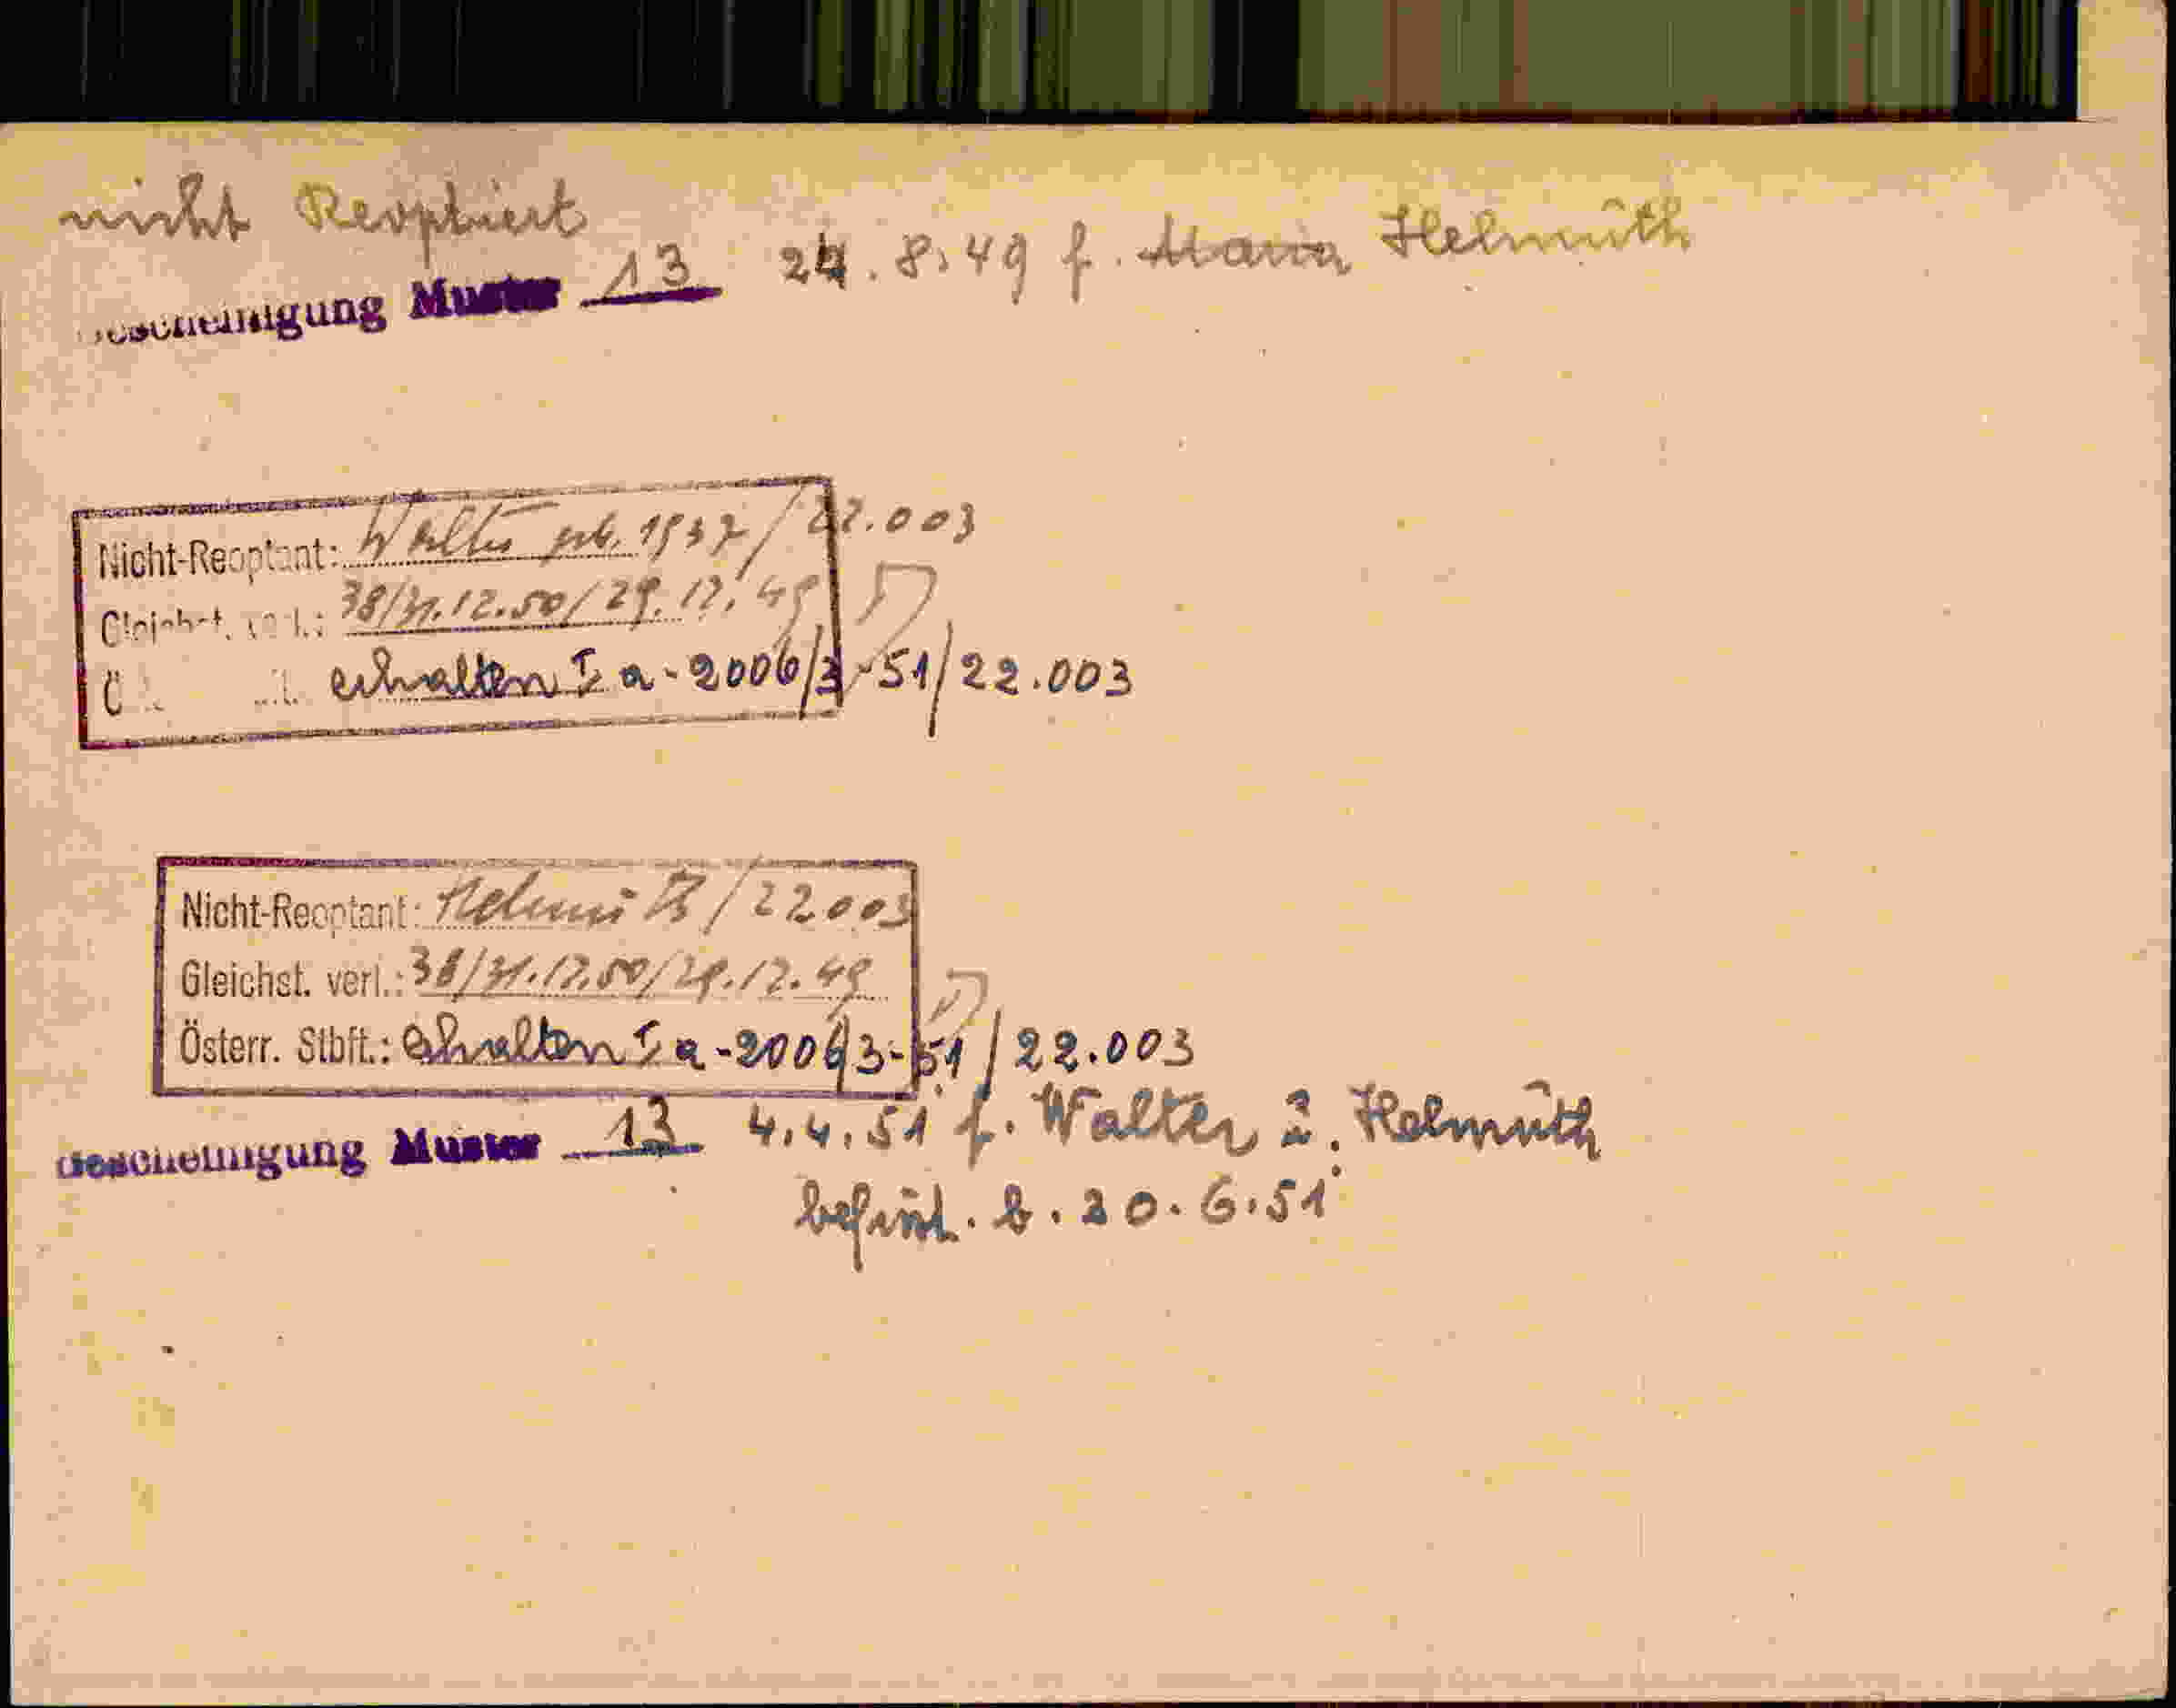 nicht Reoptiert
Bescheinigung Muster 13 24.8.49 f. Maria Helmuth
Nicht-Reoptant: Walter geb. 1937/22.003
Gleichst. verl.: 38/31.12.50/29.12.49
Ö erhalten I a-2006/3-51/22.003
Nicht-Reoptant: Helmuth/22003
Gleichst. verl.: 38/31.12.50/29.12.49
Österr. Stbft.: erhalten I a-2006/3-51/22.003
Bescheinigung Muster 13 4.4.51 f. Walter u. Helmuth
befrist. b. 30.6.51